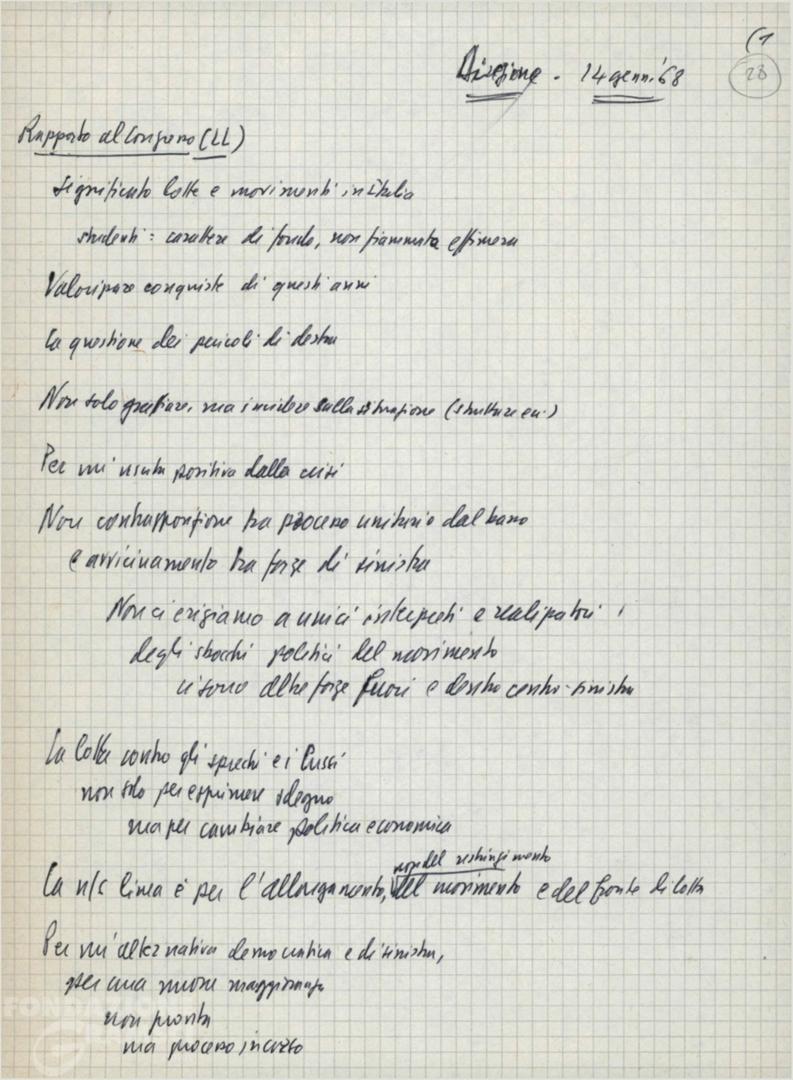 (1
28
Direzione - 14 genn. '68
Rapporto al Congresso (LL)
Significato lotte e movimenti in Italia
studenti: carattere di fondo, non fiammata effimera
Valorizzare conquiste di questi anni
La questione dei pericoli di destra
Non solo gestire, ma incidere sulla situazione (strutture ecc.)
Per un'uscita positiva dalla crisi
Non contrapposizione tra processo unitario dal basso
e avvicinamento tra forze di sinistra
Non ci erigiamo a unici interpreti e realizzatori
degli sbocchi politici del movimento
ci sono altre forze fuori e dentro centro-sinistra
La lotta contro gli sprechi e i lussi
non solo per esprimere sdegno
ma per cambiare politica economica
non del restringimento
La n/s linea è per l'allargamento, del movimento e del fronte di lotta
Per un'alternativa democratica e di sinistra,
per una nuova maggioranza
non pronta
ma processo in corso